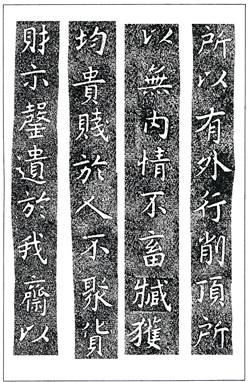 所以有外行削頂所
以無內情不畜臧獲
均貴賤於人不聚貨
財示罄遺於我齋以